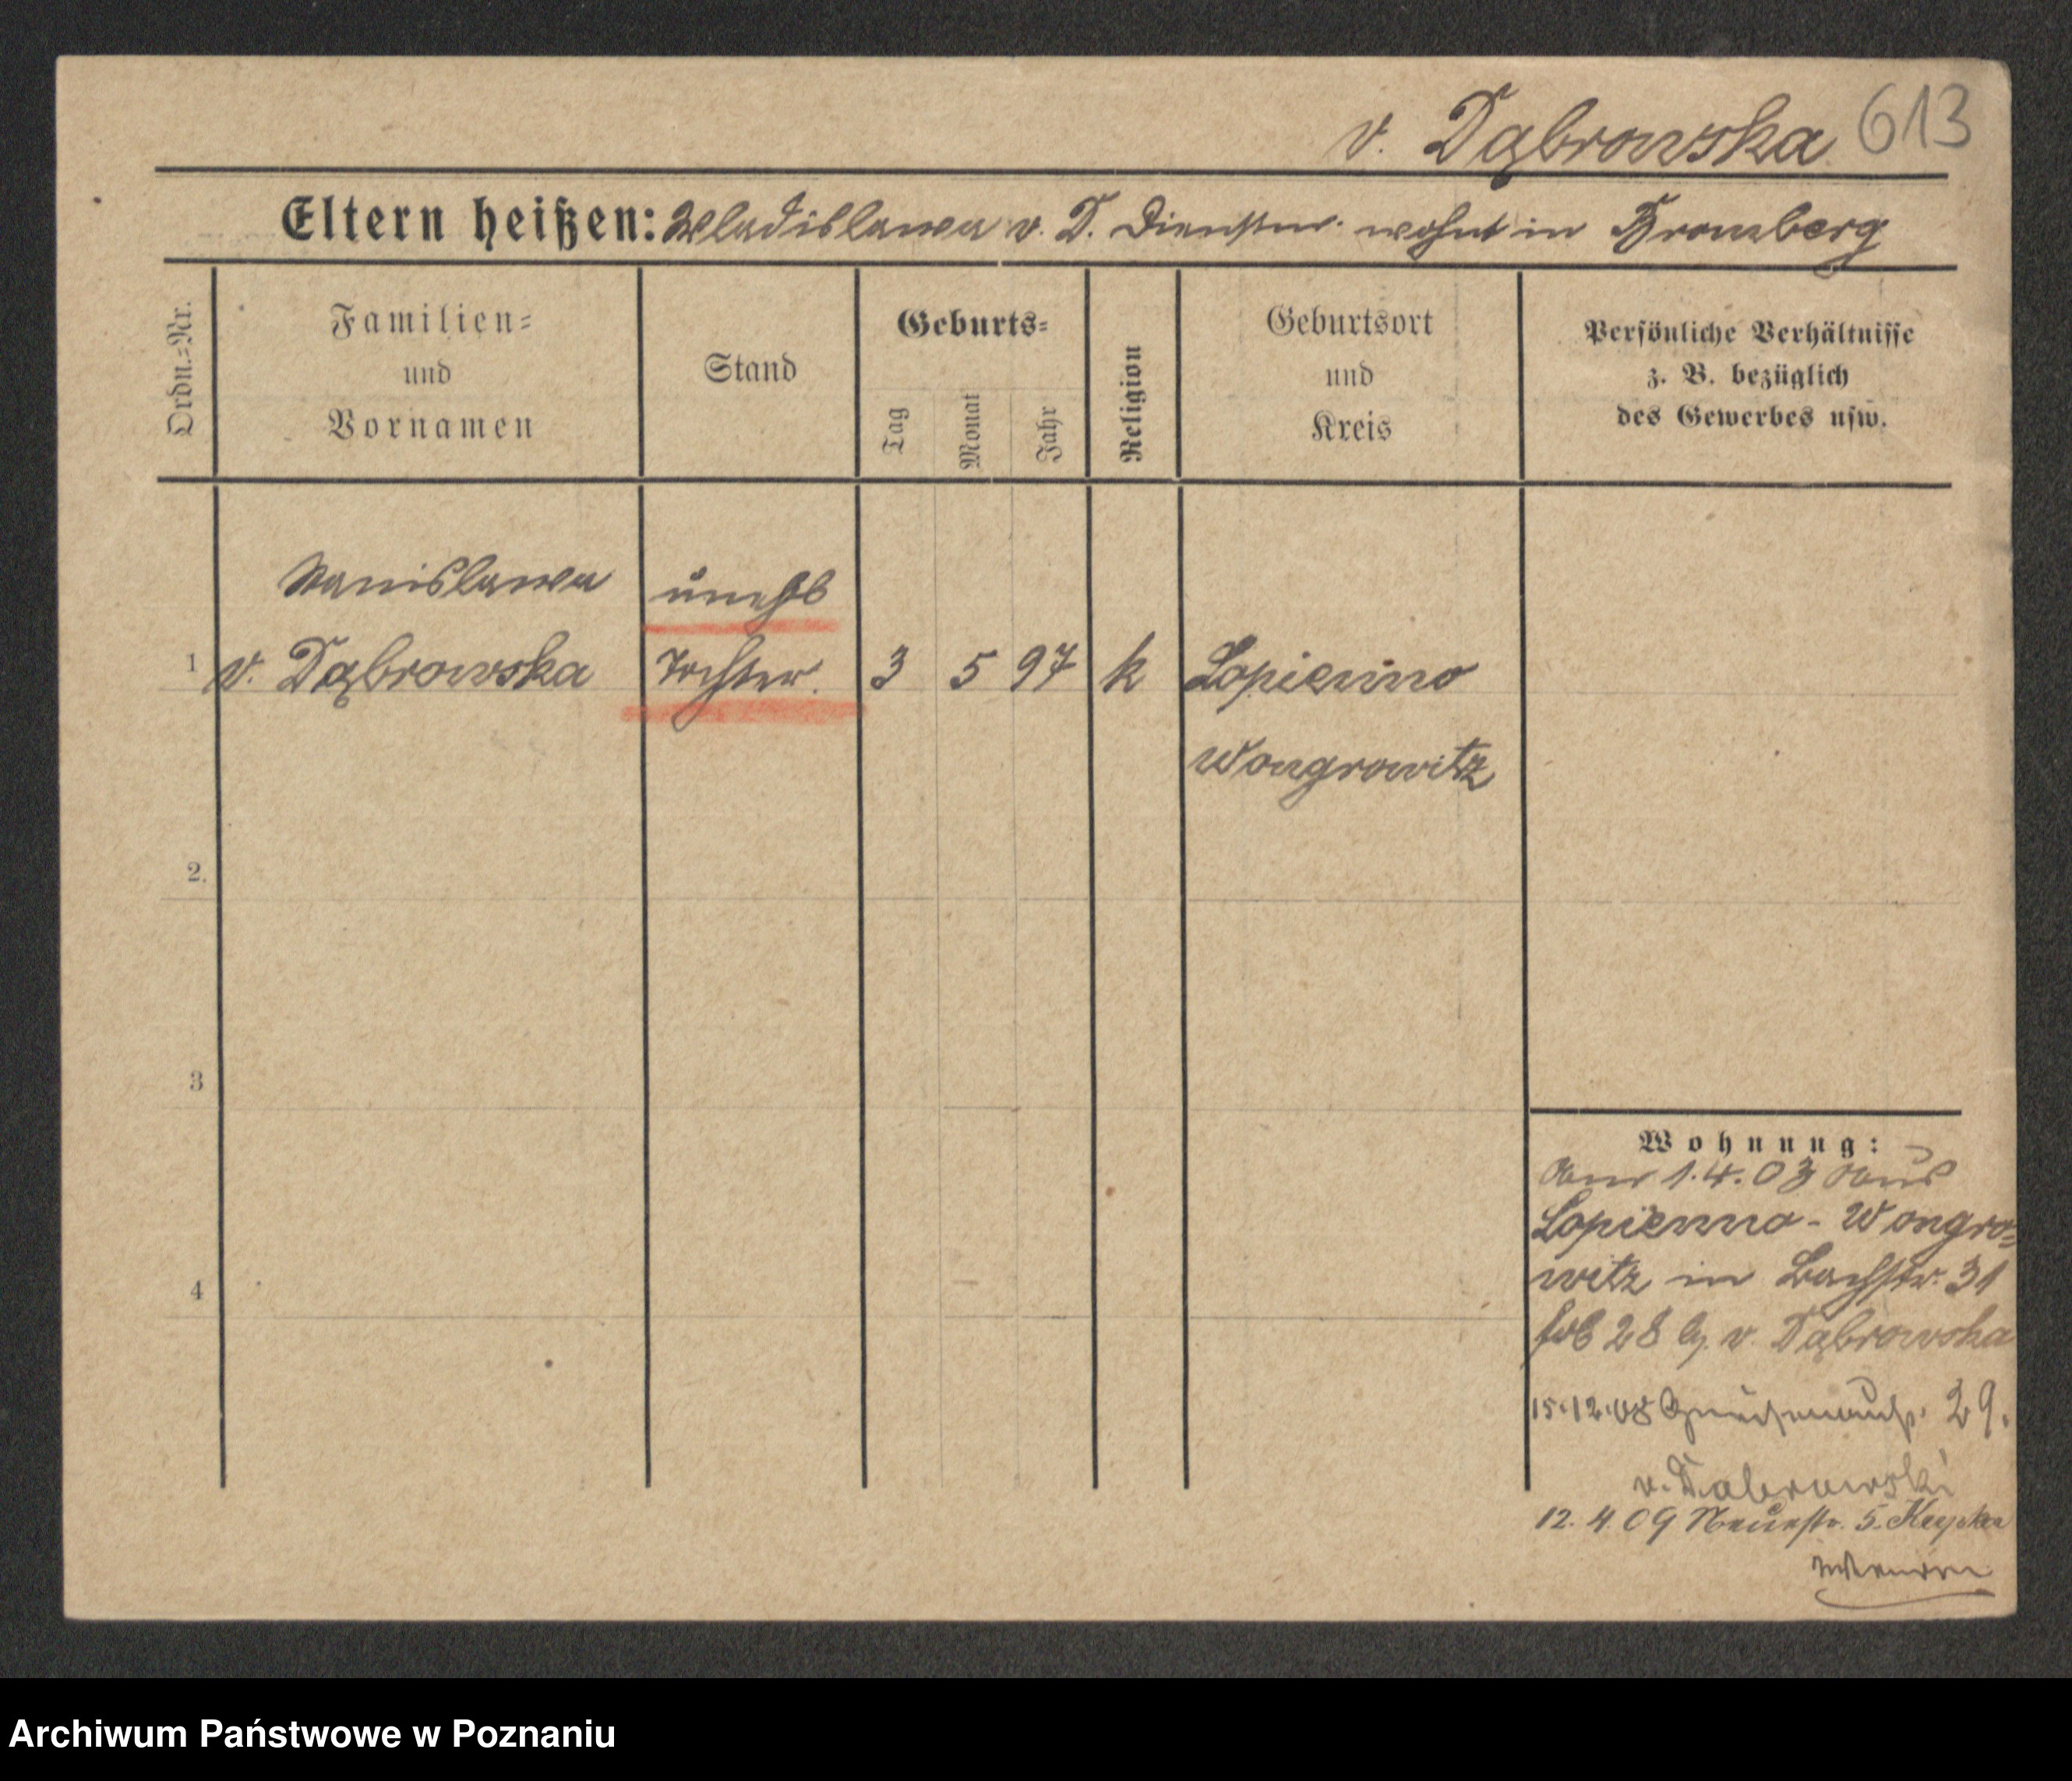 v. Dąbrowska 613
Eltern heißen: Wladislawa v. D. Dienstm. wohnt in Bromberg
Ordn.=Nr.
Familien=
und
Vornamen
Stand
Geburts=
Tag
Monat
Jahr
Religion
Geburtsort
und
Kreis
Persönliche Verhältnisse
z. B. bezüglich
des Gewerbes usw.
Stanislawa unehl
1 v. Dąbrowska Tochter. 3 5 97 k Lopienno
Wongrowitz
2.
3
4
Wohnung:
Am 1.4.03 aus
Lopienno - Wongro=
witz in Bachstr. 31
28 v. Dąbrowska
15.12.08 29.
v. Dabrowski
12. 4. 09 Neuestr. 5.
Archiwum Państwowe w Poznaniu